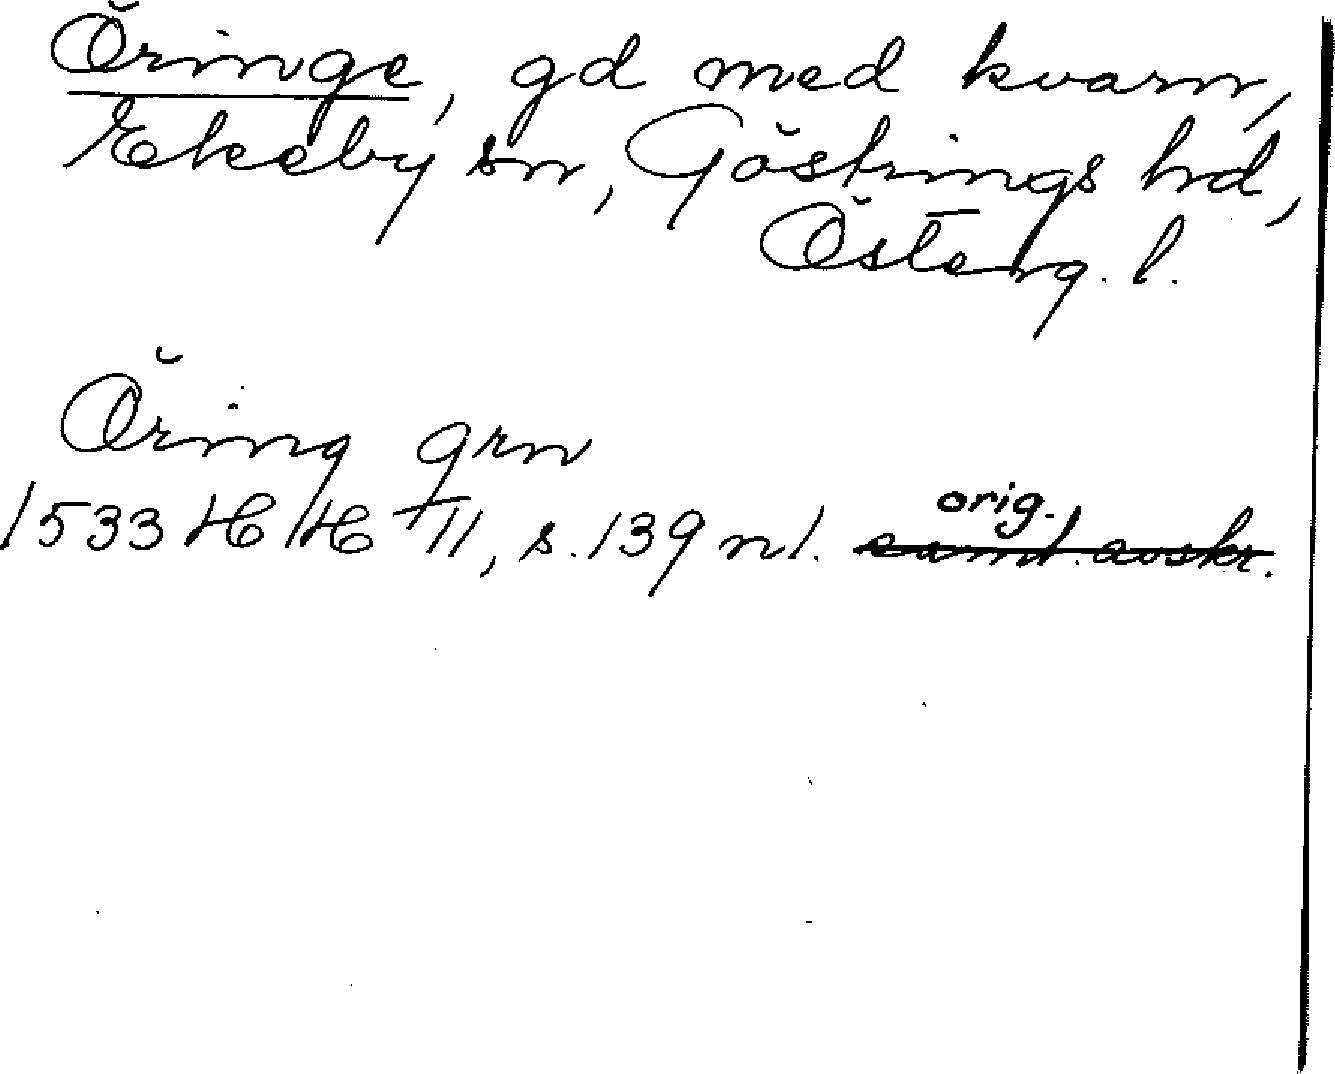 Öringe, gd med kvarn,
Ekeby sn, Göstrings hd,
Österg. l.
Öring grn
1533 HH 11, s. 139 nl. orig.
samt. avskr.